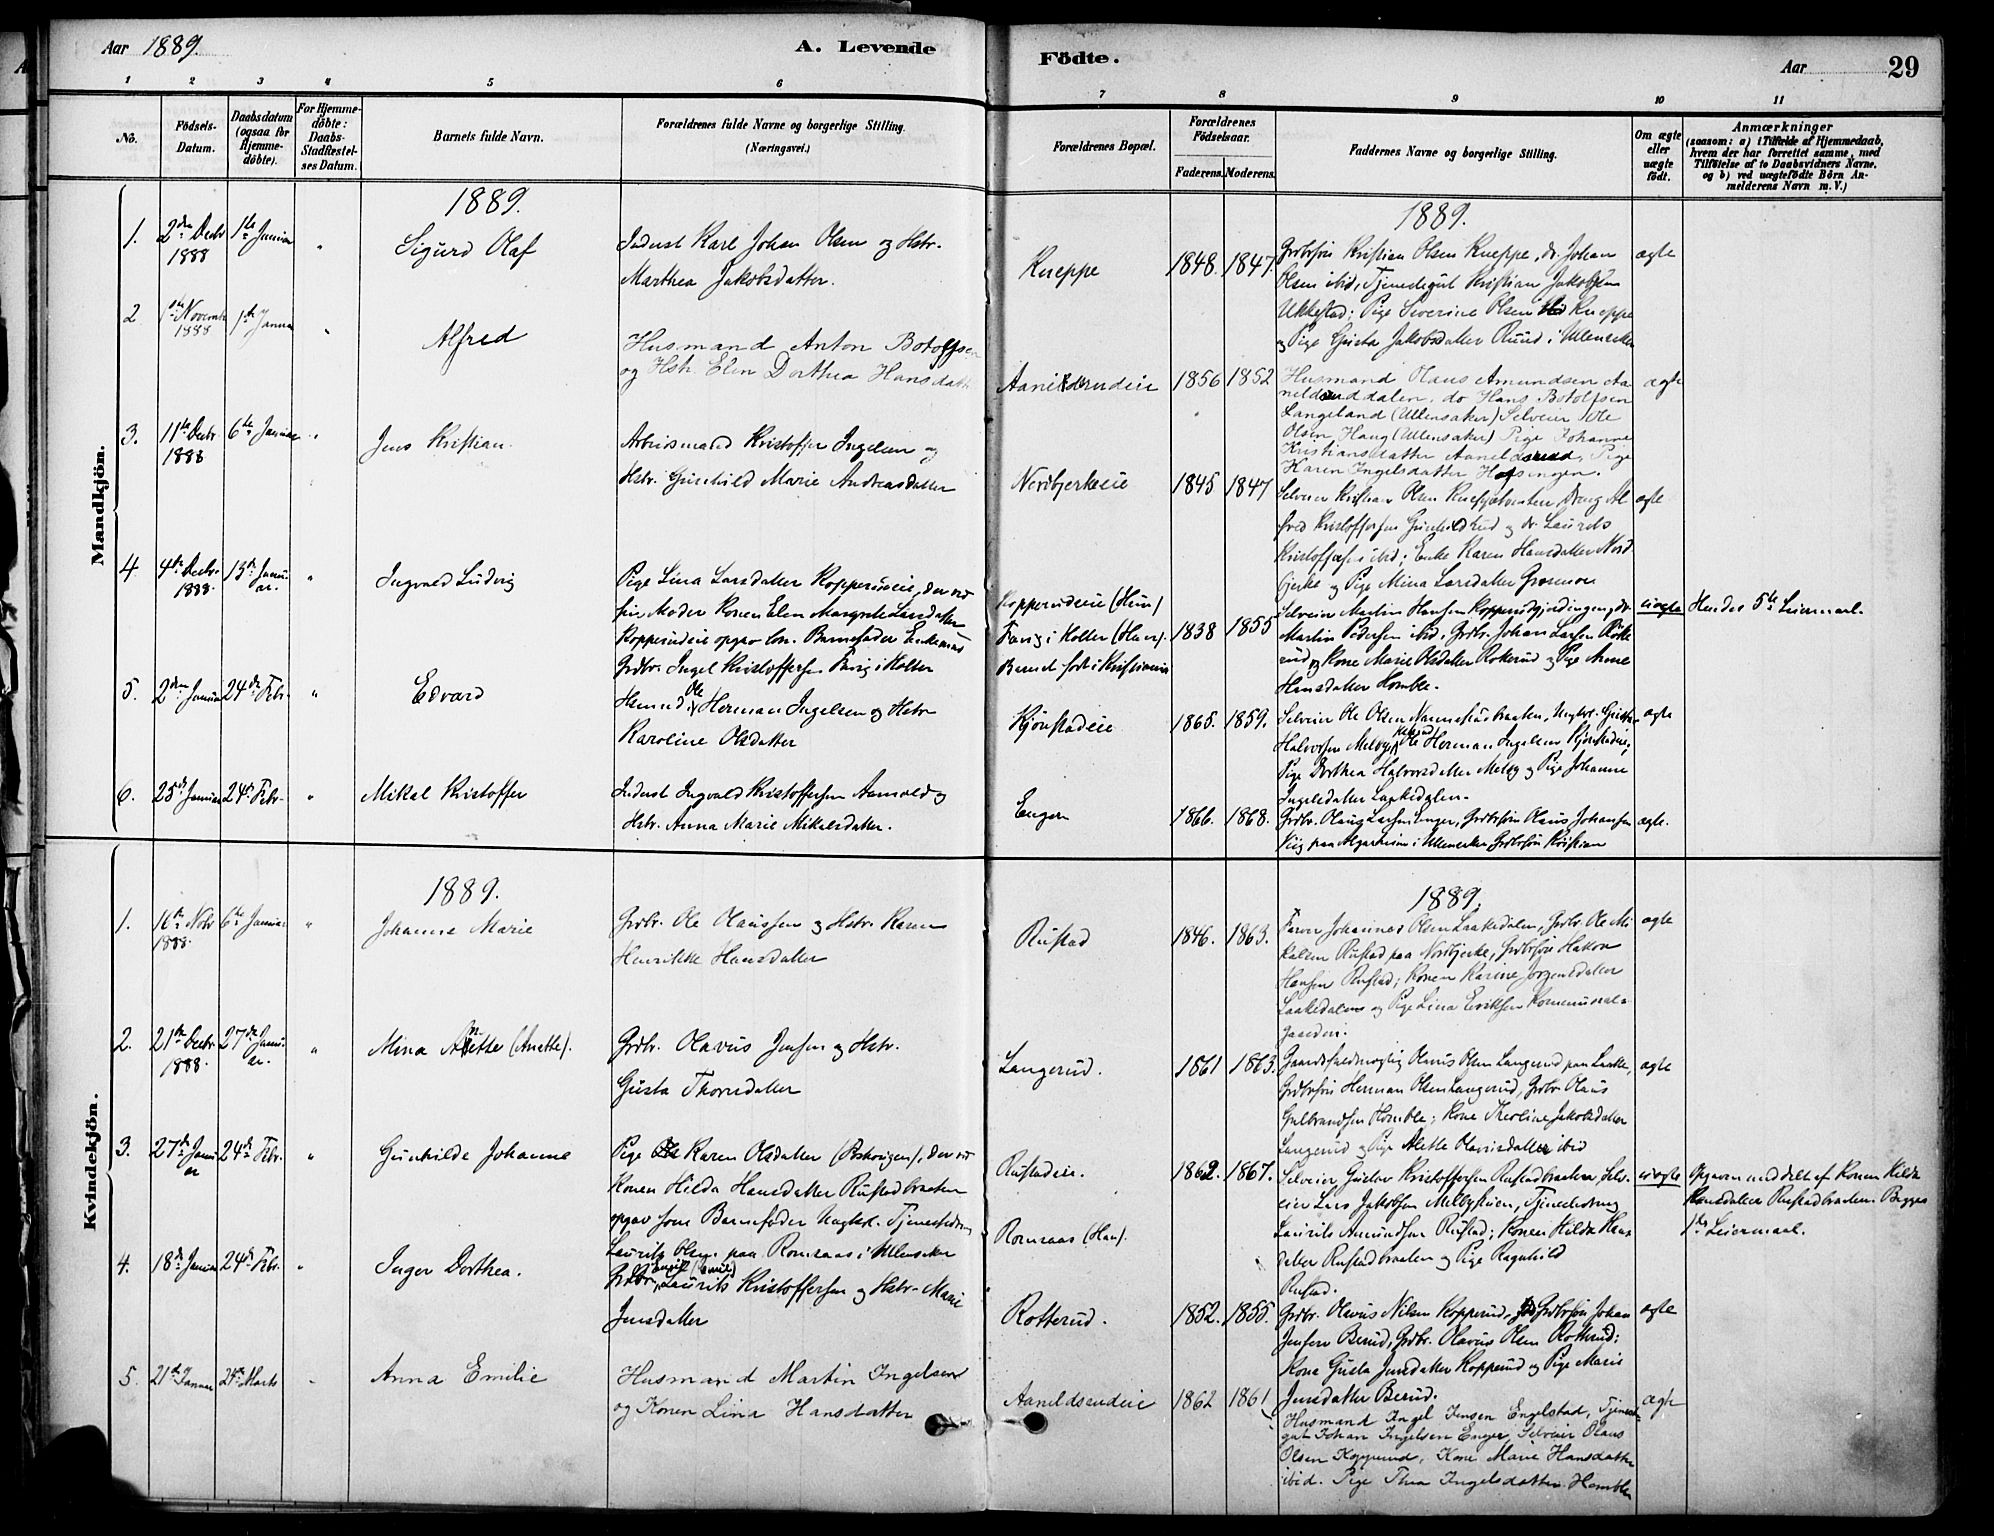 Aar 1889.
A. Levende
Födte.
Aar
29
1 2 3 4 5 6 7 8 9 10 11
No.
Födsels-
Datum.
Daabsdatum
(ogsaa for
Hjemme-
döbte).
For Hjemme-
döbte:
Daabs-
Stadfæstel-
ses Datum.
Barnets fulde Navn.
Forældrenes fulde Navne og borgerlige Stilling.
(Næringsvei.)
Forældrenes Bopæl.
Forældrenes
Födselsaar.
Faderens. Moderens.
Faddernes Navne og borgerlige Stilling.
Om ægte
eller
uægte
födt.
Anmærkninger
(saasom: a) i Tilfælde af Hjemmedaab,
hvem der har forrettet samme, med
Tilföielse af to Daabsvidners Navne.
og b) ved uægtefödte Börn An-
melderens Navn m. V.)
Mandkjön.
1889.
1889.
1. 2den Decbr 1888 1ste Januar " Sigurd Olaf
Inderst Karl Johan Olsen og Hstr.
Marthea Jakobsdatter.
Kneppe 1848. 1847.
Grdbrsön Kristian Olsen Kneppe, do Johan
Olsen ibid, Tjenestegut Kristian Jakobsen
Ukkestad; Pige Severine Olsen Kneppe
og Pige Gusta Jakobsdatter Ruud i Ullensaker
ægte
2 Novemb 1888 1ste Januar " Alfred
Husmand Anton Botolfsen
og Hstr. Elen Dorthea Hansdatt
Aaneldsrudeie 1856 1852
Husmand Olaus Amundsen Aa-
neldsruddalen, do Hans Botolfsen
Langeland (Ullensaker) Selveier Ole
Olsen Haug (Ullensaker) Pige Johanne
Kristiansdatter Aaneldsrud, Pige
Karen Ingelsdatter
ægte
3. 11te Decbr 1888 6te Januar " Jens Kristian.
Arbeidsmand Kristoffer Ingelsen og
Hstr. Gunhild Marie Andreasdatter
Nordbjerkeeie 1845 1847
Selveier Kristian Olsen
fred Kristoffersen Gunhildrud og do Laurits
Kristoffersen ibid; Enke Karen Hansdatter Nord
bjerke og Pige Mina Larsdatter
ægte
4. 4de Decbr. 1888. 13de Janu- ar. " Ingvald Ludvig
Pige Lina Larsdatter Kopperudeie, der ved
sin Moder Konen Elen Margrete Larsdatter
Kopperudeie opgav som Barnefader Enkemand
Grdbr. Ingel Kristoffersen i Holter
Kopperudeie (Hun)
i Holter (Han).
Barnet födt i Kristiania
1838 1855
Selveier Martin Hansen
Martin Pedersen ibid, Grdbr. Johan Larsen Rotte
rud, og Kone Marie Olsdatter Roterud og Pige Anne
Hansdatter Homble.
uægte
Hendes 5te Leiermaal.
5. 2den Januar 24de Febr. " Edvard
Husmd. Ole Herman Ingelsen og Hstr.
Karoline Olsdatter
Kjönstadeie 1865. 1859.
Selveier Ole Olsen Nannestadbraaten, Ungkarl Gustav
Halvorsen Melby, Ole Herman Ingelsen Kjönstadeie,
Pige Dorthea Halvorsdatter Melby og Pige Johanne
Ingelsdatter Laakedalen.
ægte
6. 25de Januar 24de Febr. " Mikal Kristoffer
Inderst Ingvald Kristoffersen Aamold og
Hstr. Anna Marie Mikalsdatter.
Engen 1866. 1868.
Grdbr. Olaus Larsen Enger, Grdbrsön Olaus Johansen
Viig paa Algarheim i Ullensaker, Grdbrsön Kristian
ægte.
Kvindekjön.
1889.
1889.
1. 16de Novbr 1888. 6te Januar " Johanne Marie
Grdbr. Ole Olaussen og Hstr. Karen
Henrikke Hansdatter
Rustad 1846. 1863.
Johannes Olsen Laakedalen, Grdbr. Ole Mi-
kalsen Rustad paa Nordbjerke, Grdbrsön Hakon
Hansen Rustad; Konen Karine Jörgensdatter
Laakedalen og Pige Lina Eriksen Kommunal-
gaarden.
ægte
2. 21de Decbr. 1888. 27de Janu- ar. " Mina Anette (Anette).
Grdbr. Olavus Jensen og Hstr.
Gusta Thorsdatter
Langerud. 1861 1863.
Gaardsfuldmægtig Olaus Olsen Langerud paa Laake,
Grdbrsön Herman Olsen Langerud, Grdbr Olaus
Gulbrandsen Homble; Kone Theoline Jakobsdatter
Langerud og Pige Alette Olausdatter ibid
ægte
3. 27de Janu- ar 24de Febr. " Gunhilde Johanne
Pige Karen Olsdatter, der ved
Konen Hilda Hansdatter Rustadbraaten
opgav som Barnefader Ungkarl Tjenestedreng
Laurits Olsen paa Romsaas i Ullensaker
Rustadeie.
Romsaas (Han).
1862. 1867.
Selveier Gustav Kristoffersen Rustadbraaten, Selv-
eier Lars Jakobsen Melbystuen, Tjenestedreng
Laurits Amundsen Rustad; Konen Hilda Hans
datter Rustadbraaten og Pige Ragnhild
Rustad.
uægte
Opgaven meddelt af Konen Hilda
Hansdatter Rustadbraaten. Begges
1ste Leiermaal.
4. 18de Januar 24de Febr. " Inger Dorthea.
Grdbr. Laurits Kristoffersen og Hstr. Marie
Jensdatter
Rotterud. 1852. 1855.
Grdbr. Olavus Nilsen Kopperud, Grdbrsön Johan
Jensen Berud, Grdbr. Olavus Olsen Rotterud;
Kone Gusta Jensdatter Kopperud og Pige Marie
Jensdatter Berud.
ægte
5. 21de Januar 24de Marts " Anna Emilie
Husmand Martin Ingelsen
og Konen Lina Hansdatter
Aaneldsrudeie 1862 1861
Husmand Ingel Jensen Engelstad, Tjeneste-
gut Johan Ingelsen Enger, Selveier Olaus
Olsen Kopperud, Kone Marie Hansdatter
ibid. Pige Thea Ingelsdatter Homble
ægte